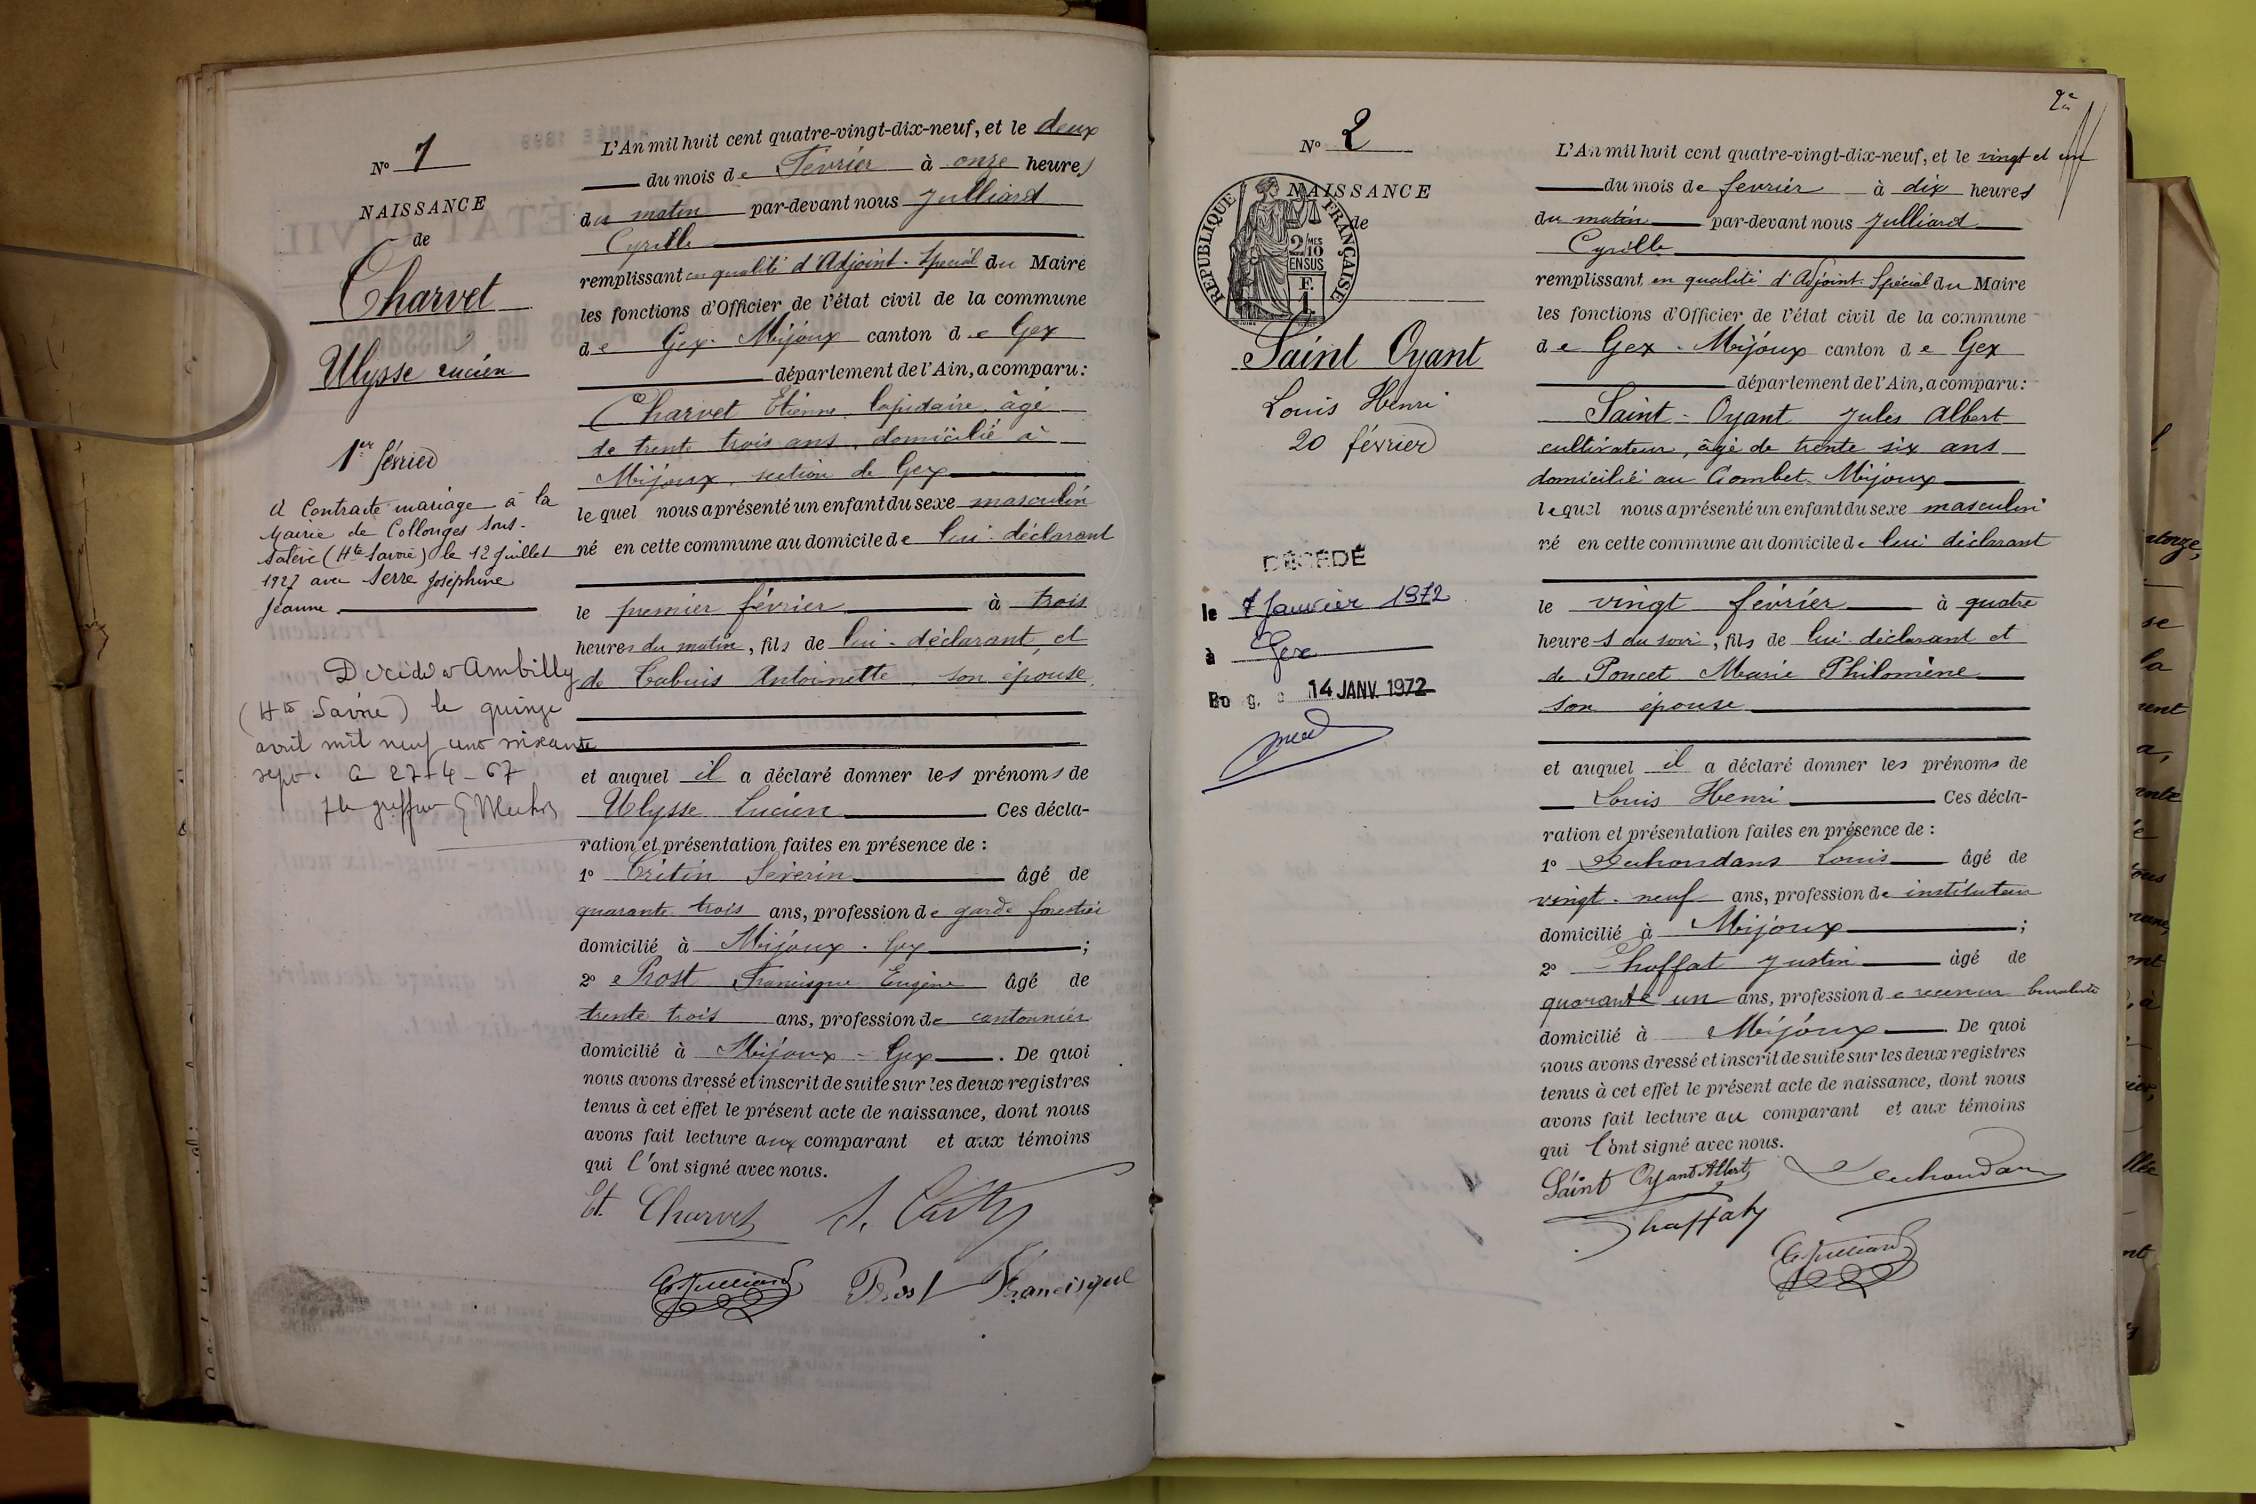 N° 1
NAISSANCE
de
Charvet
Ulysse Lucien
1er février
A Contracté mariage à la
Mairie de Collonges sous-
Salève (Hte Savoie) le 12 Juillet
1927 avec Serra Joséphine
Jeanne.
Décédé à Ambilly
(Hte Savoie) le quinze
avril mil neuf cent soixante
sept. A 27-4-67
L'An mil huit cent quatre-vingt-dix-neuf, et le deux
du mois de Février à onze heures
du matin par-devant nous Julliard
Cyrille
remplissant en qualité d'Adjoint-Spécial du Maire
les fonctions d'Officier de l'état civil de la commune
de Gex-Mijoux canton de Gex
département de l'Ain, a comparu:
Charvet Etienne, lapidaire, âgé
de trente trois ans, domicilié à
Mijoux, section de Gex
lequel nous a présenté un enfant du sexe masculin
né en cette commune au domicile de lui-déclarant
le premier février à trois
heures du matin, fils de lui-déclarant, et
de Cabuis Antoinette, son épouse,
et auquel il a déclaré donner les prénoms de
Ulysse Lucien Ces décla-
ration et présentation faites en présence de :
1° Critin Séverin âgé de
quarante trois ans, profession de garde forestier
domicilié à Mijoux-Gex ;
2° Prost Francisque Eugène âgé de
trente trois ans, profession de cantonnier
domicilié à Mijoux-Gex. De quoi
nous avons dressé et inscrit de suite sur les deux registres
tenus à cet effet le présent acte de naissance, dont nous
avons fait lecture aux comparant et aux témoins
qui l'ont signé avec nous.
Et. Charvet
C. Julliard Prost Francisque
2e
N° 2
NAISSANCE
de
REPUBLIQUE FRANÇAISE
2/10 MES
EN SUS
F.
1
Saint Oyant
Louis Henri
20 février
DÉCÉDÉ
le 7 Janvier 1972
à Gex
Bourg, 14 JANV. 1972
L'An mil huit cent quatre-vingt-dix-neuf, et le vingt et un
du mois de fevrier à dix heures
du matin par-devant nous Julliard
Cyrille
remplissant en qualité d'Adjoint-Spécial du Maire
les fonctions d'Officier de l'état civil de la commune
de Gex-Mijoux canton de Gex
département de l'Ain, a comparu:
Saint-Oyant Jules Albert
cultivateur, âgé de trente six ans
domicilié au Combet-Mijoux
lequel nous a présenté un enfant du sexe masculin
né en cette commune au domicile de lui déclarant
le vingt fevrier à quatre
heures du soir, fils de lui-déclarant et
de Poncet Marie Philomène
son épouse
et auquel il a déclaré donner les prénoms de
Louis Henri Ces décla-
ration et présentation faites en présence de :
1° Duhoudans Louis âgé de
vingt-neuf ans, profession de instituteur
domicilié à Mijoux ;
2° Chaffat Justin âgé de
quarante un ans, profession de receveur buraliste
domicilié à Mijoux. De quoi
nous avons dressé et inscrit de suite sur les deux registres
tenus à cet effet le présent acte de naissance, dont nous
avons fait lecture au comparant et aux témoins
qui l'ont signé avec nous.
Saint Oyant Albert
Chaffat
C. Julliard